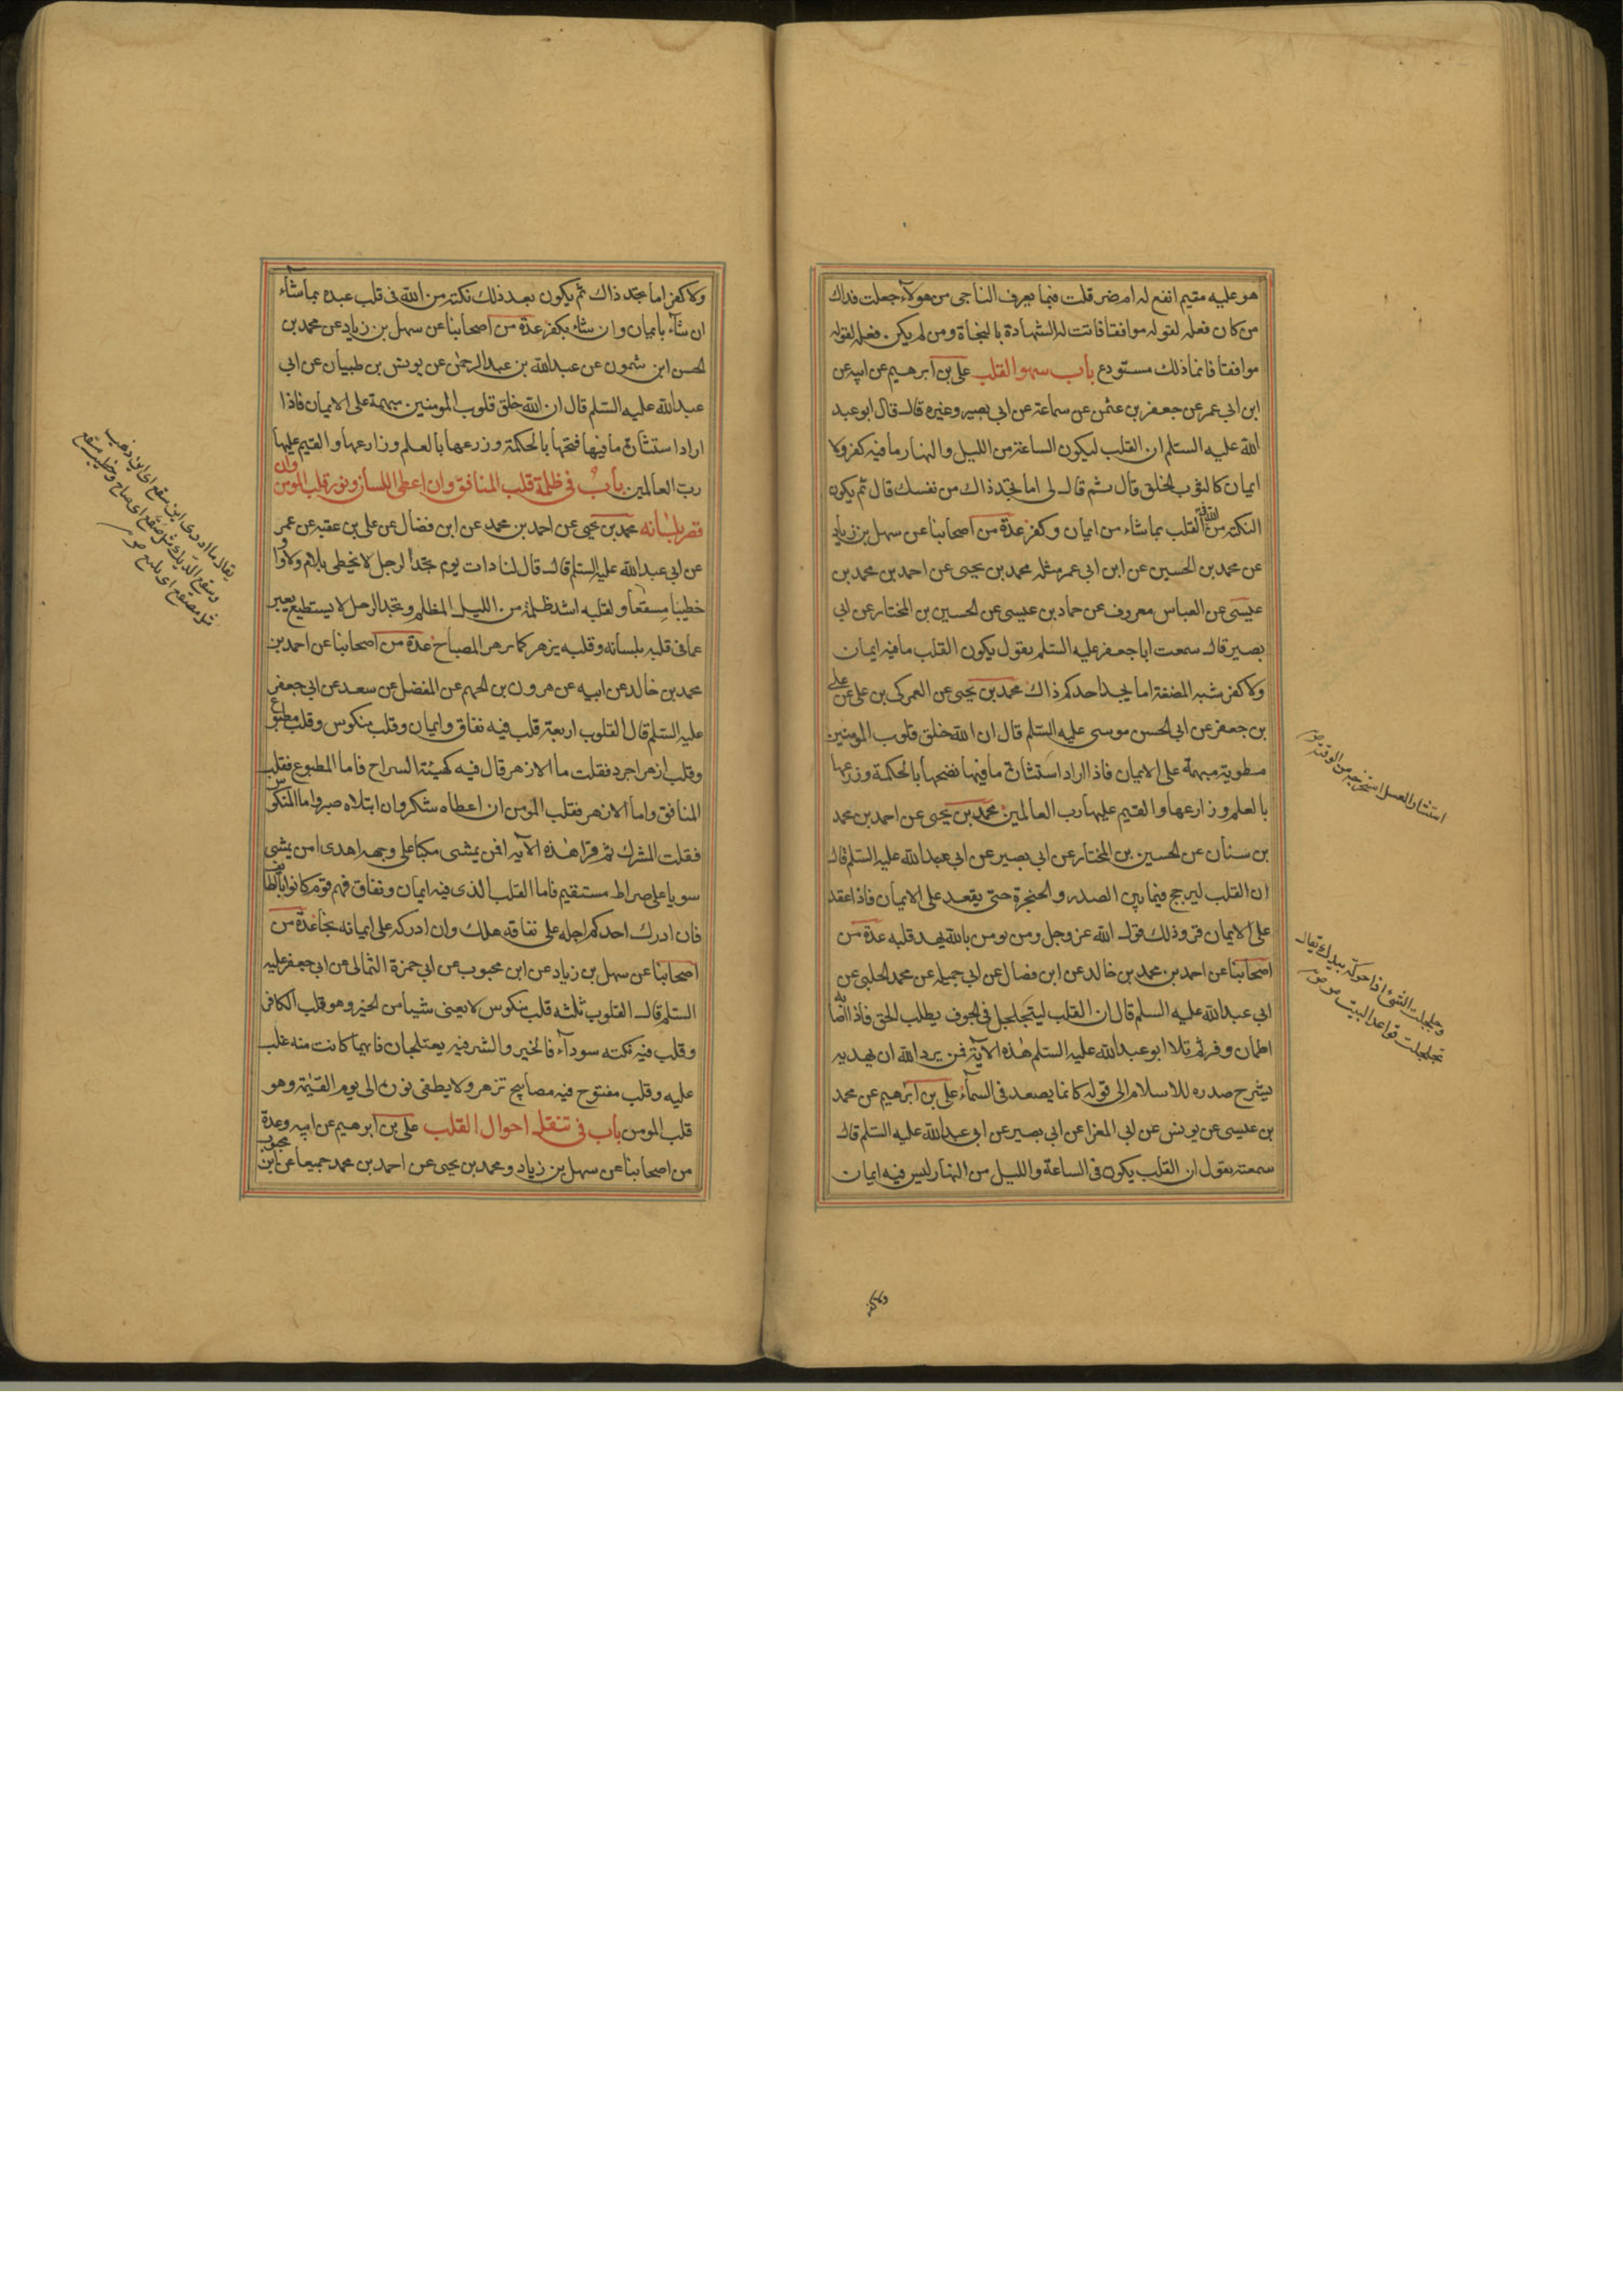 هو عليه مقيم انفع له ام ضر قلت فبما يعرف الناجى من هولاء جعلت فداك
من كان فعله لقوله موافقا فاتت له الشهادة بالنجاة ومن لم يكن فعله لقوله
موافقا فانما ذلك مستودع باب سهو القلب على بن ابرهيم عن ابيه عن
ابن ابى عمر عن جعفر بن عثمن عن سماعة عن ابى بصير وغيره قال قال ابو عبد
الله عليه السلم ان القلب ليكون الساعة من الليل والنهار ما فيه كفر ولا
ايمان كالثوب الخلق قال ثم قال لى اما تجد ذاك من نفسك قال ثم يكون
النكتة من الله فى القلب بما شاء من ايمان وكفر عدة من اصحابنا عن سهل بن زياد
عن محمد بن الحسين عن ابن ابى عمر مثله محمد بن يحيى عن احمد بن محمد بن
عيسى عن العباس معروف عن حماد بن عيسى عن الحسين بن المختار عن ابى
بصير قال سمعت ابا جعفر عليه السلم يقول يكون القلب ما فيه ايمان
ولا كفر شبه المضغة اما يجد احدكم ذاك محمد بن يحيى عن العمركى بن على عن على
بن جعفر عن ابى الحسن موسى عليه السلم قال ان الله خلق قلوب المومنين
مطوية مبهمة على الايمان فاذا اراد استثارة ما فيها نضحها بالحكمة وزرعها
بالعلم وزارعها والقيم عليها رب العالمين محمد بن يحيى عن احمد بن محمد
بن سنان عن الحسين بن المختار عن ابى بصير عن ابى عبد الله عليه السلم قال
ان القلب ليرجج فيما بين الصدر والحنجرة حتى يقعد على الايمان فاذا عقد
على الايمان قر وذلك قول الله عز وجل ومن يومن بالله يهد قلبه عدة من
اصحابنا عن احمد بن محمد بن خالد عن ابن فضال عن ابى جميله عن محمد الحلبى عن
ابى عبد الله عليه السلم قال ان القلب ليتجلجل فى الجوف يطلب الحق فاذا اصابه
اطمان وقر ثم تلا ابو عبد الله عليه السلم هذه الاية فمن يرد الله ان يهديه
يشرح صدره للاسلام الى قوله كانما يصعد فى السماء على بن ابرهيم عن محمد
بن عيسى عن يونس عن ابى المغرا عن ابى بصير عن ابى عبد الله عليه السلم قال
سمعته يقول ان القلب يكون فى الساعة والليل من النهار ليس فيه ايمان
ولا كفر
استثار العسل استخرجه من الوقبة
وجلجلت الشىء اذا حركته بيدك يقال
تجلجلت قواعد البيت
ولا كفر اما تجد ذاك ثم يكون بعد ذلك نكتة من الله فى قلب عبده بما شاء
ان شاء بايمان وان شاء بكفر عدة من اصحابنا عن سهل بن زياد عن محمد بن
الحسن ابن شمون عن عبد الله بن عبد الرحمن عن يونس بن ظبيان عن ابى
عبد الله عليه السلم قال ان الله خلق قلوب المومنين مبهمة على الايمان فاذا
اراد استثارة ما فيها فتحها بالحكمة وزرعها بالعلم وزارعها والقيم عليها
رب العالمين باب فى ظلمة قلب المنافق وان اعطى اللسان ونور قلب المومن وان
قصر بلسانه محمد بن يحيى عن احمد بن محمد عن ابن فضال عن على بن عقبه عن عمر
عن ابى عبد الله عليه السلم قال قال لنا ذات يوم تجد الرجل لا يخطى بلام ولا واو
خطيبا مسقعا ولقلبه اشد ظلمة من الليل المظلم وتجد الرجل لا يستطيع يعبر
عما فى قلبه بلسانه وقلبه يزهر كما يزهر المصباح عدة من اصحابنا عن احمد بن
محمد بن خالد عن ابيه عن هرون بن الجهم عن المفضل عن سعد عن ابى جعفر
عليه السلم قال القلوب اربعة قلب فيه نفاق وايمان وقلب منكوس وقلب مطبوع
وقلب ازهر اجرد فقلت ما الازهر قال فيه كهيئة السراج فاما المطبوع فقلب
المنافق واما الازهر فقلب المومن ان اعطاه شكر وان ابتلاه صبر واما المنكوس
فقلت المشرك ثم قرا هذه الايه افمن يمشى مكبا على وجهه اهدى امن يمشى
سويا على صراط مستقيم فاما القلب الذى فيه ايمان ونفاق فهم قوم كانوا بالطائف
فان ادرك احدكم اجله على نفاقه هلك وان ادركه على ايمانه نجا عدة من
اصحابنا عن سهل بن زياد عن ابن محبوب عن ابى حمزة الثمالى عن ابى جعفر عليه
السلم قال القلوب ثلثه قلب منكوس لا يعنى شيا من الخير وهو قلب الكافر
وقلب فيه نكته سوداء فالخير والشر فيه يعتلجان فايهما كانت منه غلب
عليه وقلب مفتوح فيه مصابيح تزهر ولا يطفى نوره الى يوم القيمة وهو
قلب المومن باب فى تنقل احوال القلب على بن ابرهيم عن ابيه وعدة
من اصحابنا عن سهل بن زياد ومحمد بن يحيى عن احمد بن محمد جميعا عن ابن محبوب
يقال ما ادرى اين سقع اى اين ذهب
وسقع الديك مثل صقع اى صاح وخطيب مسقع
مثل مصقع اى بليغ